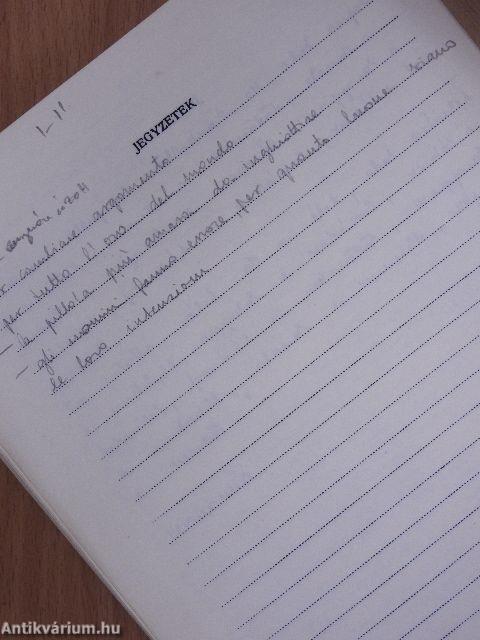 JEGYZETEK
1-1"
cambiare argomento
per tutto l'oro del mondo
- la pillola più amara da inghiottire
- gli uomini fanno errore per quanto buone siano
le loro intenzioni
Antikvárium.hu